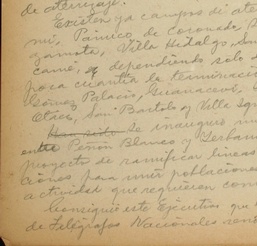 de aterrizaje.
Existen ya campos de ate
mí, Pánuco de Coronado, S
Villa Hidalgo, Sa
y dependiendo solo d
poca cuantía la terminació
Gómez Palacio, Guanaceví, C
Otáez, San Bartolo y Villa
Se inauguró
entre Peñón Blanco y Yerbani
proyecto de ramificar líneas
ciones para unir poblaciones
actividad que requieren com
Consiguió este Ejecutivo que
de Telégrafos Nacionales